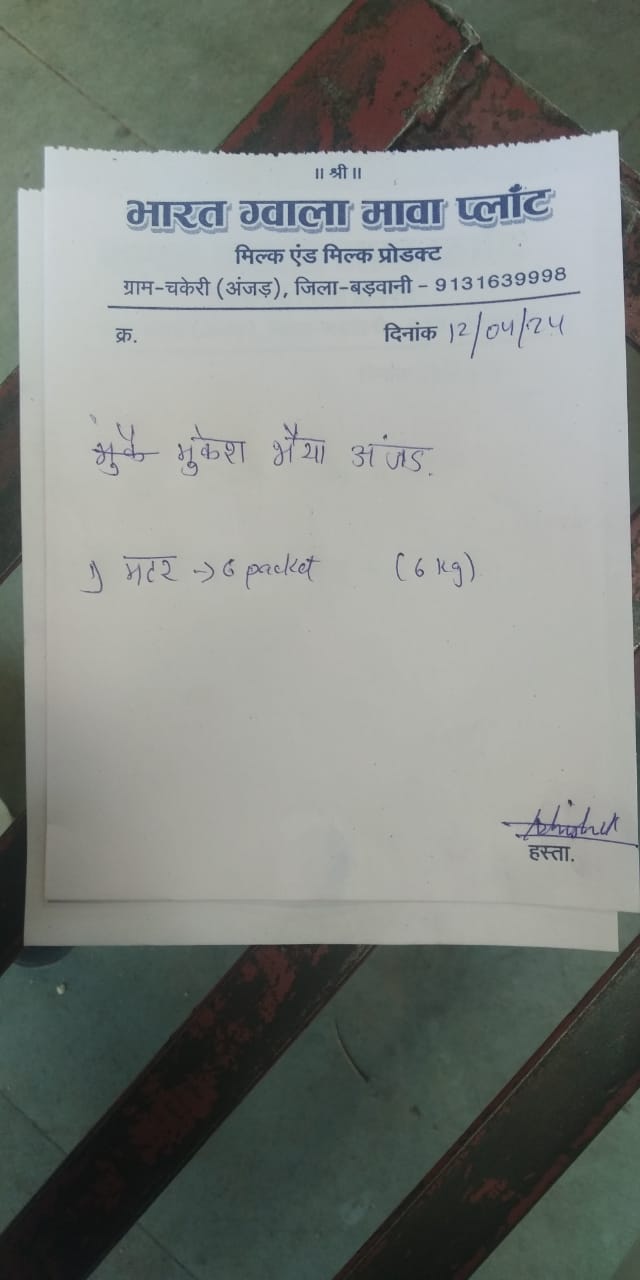 ॥ श्री ॥
भारत ग्वाला मावा प्लाँट
मिल्क एंड मिल्क प्रोडक्ट
ग्राम-चकेरी (अंजड़), जिला-बड़वानी - 9131639998
क्र. दिनांक 12/04/24
मुकेश भैया अंजड.
1) मटर → 6 packet (6 kg)
Abhishek
हस्ता.